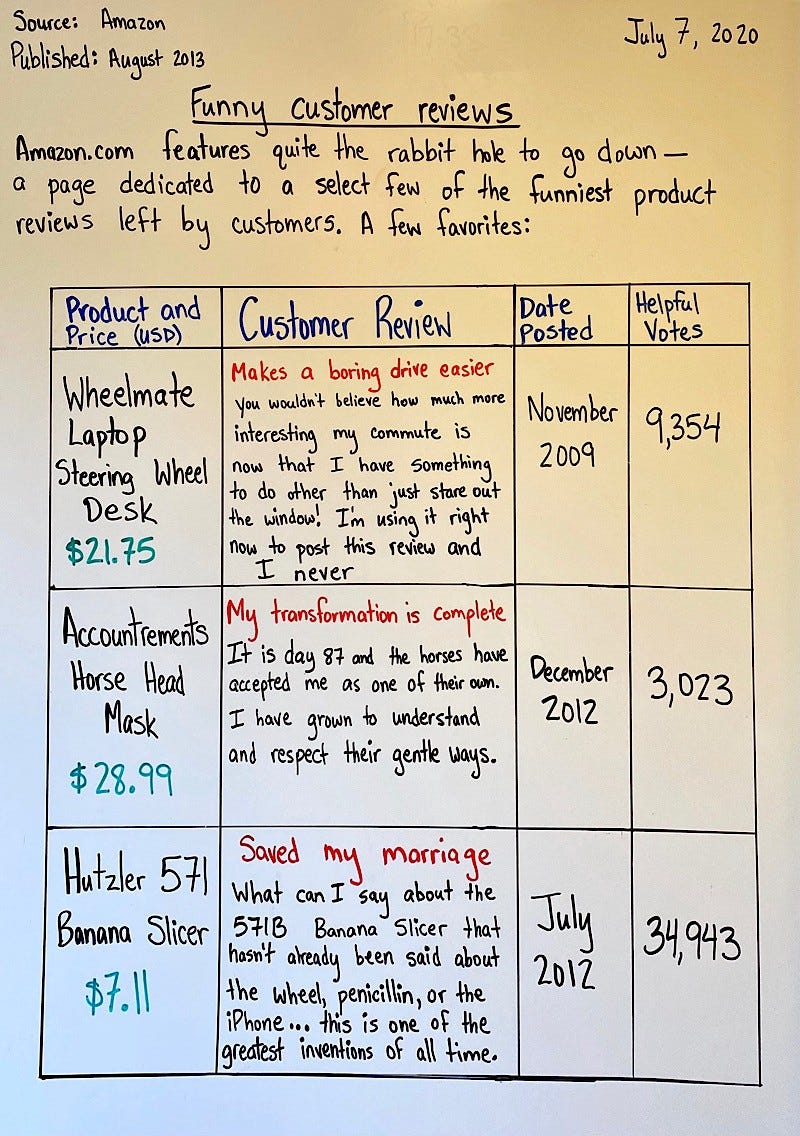 Source: Amazon
Published: August 2013
July 7, 2020
Funny customer reviews
Amazon.com features quite the rabbit hole to go down —
a page dedicated to a select few of the funniest product
reviews left by customers. A few favorites:
Product and
Price (USD)
Customer Review
Date
Posted
Helpful
Votes
Wheelmate
Laptop
Steering Wheel
Desk
$21.75
Makes a boring drive easier
You wouldn't believe how much more
interesting my commute is
now that I have something
to do other than just stare out
the window! I'm using it right
now to post this review and
I never
November
2009
9,354
Accountrements
Horse Head
Mask
$28.99
My transformation is complete
It is day 87 and the horses have
accepted me as one of their own.
I have grown to understand
and respect their gentle ways.
December
2012
3,023
Hutzler 571
Banana Slicer
$7.11
Saved my marriage
What can I say about the
571B Banana Slicer that
hasn't already been said about
the wheel, penicillin, or the
iPhone... this is one of the
greatest inventions of all time.
July
2012
34,943